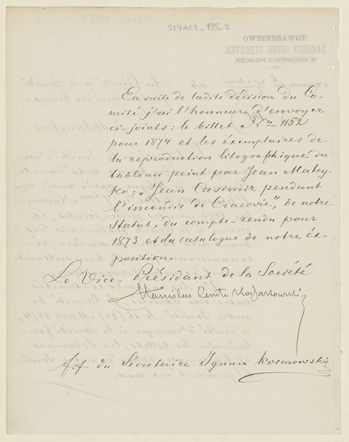 En suite de ladite décision du Co-
mité j'ai l'honneur d'envoyer
ci-joints: le billet No 1152
pour 1874 et les exemplaires de
la reproduction litographique du
tableau peint par Jean Matey-
ko: "Jean Casimir pendant
l'incendie de Cracovie", de notre
Statut, du compte-rendu pour
1873 et du catalogue de notre ex-
position.
Le Vice-Président de la Société
Stanislas Comte
f.f. du Sécretaire Ignace